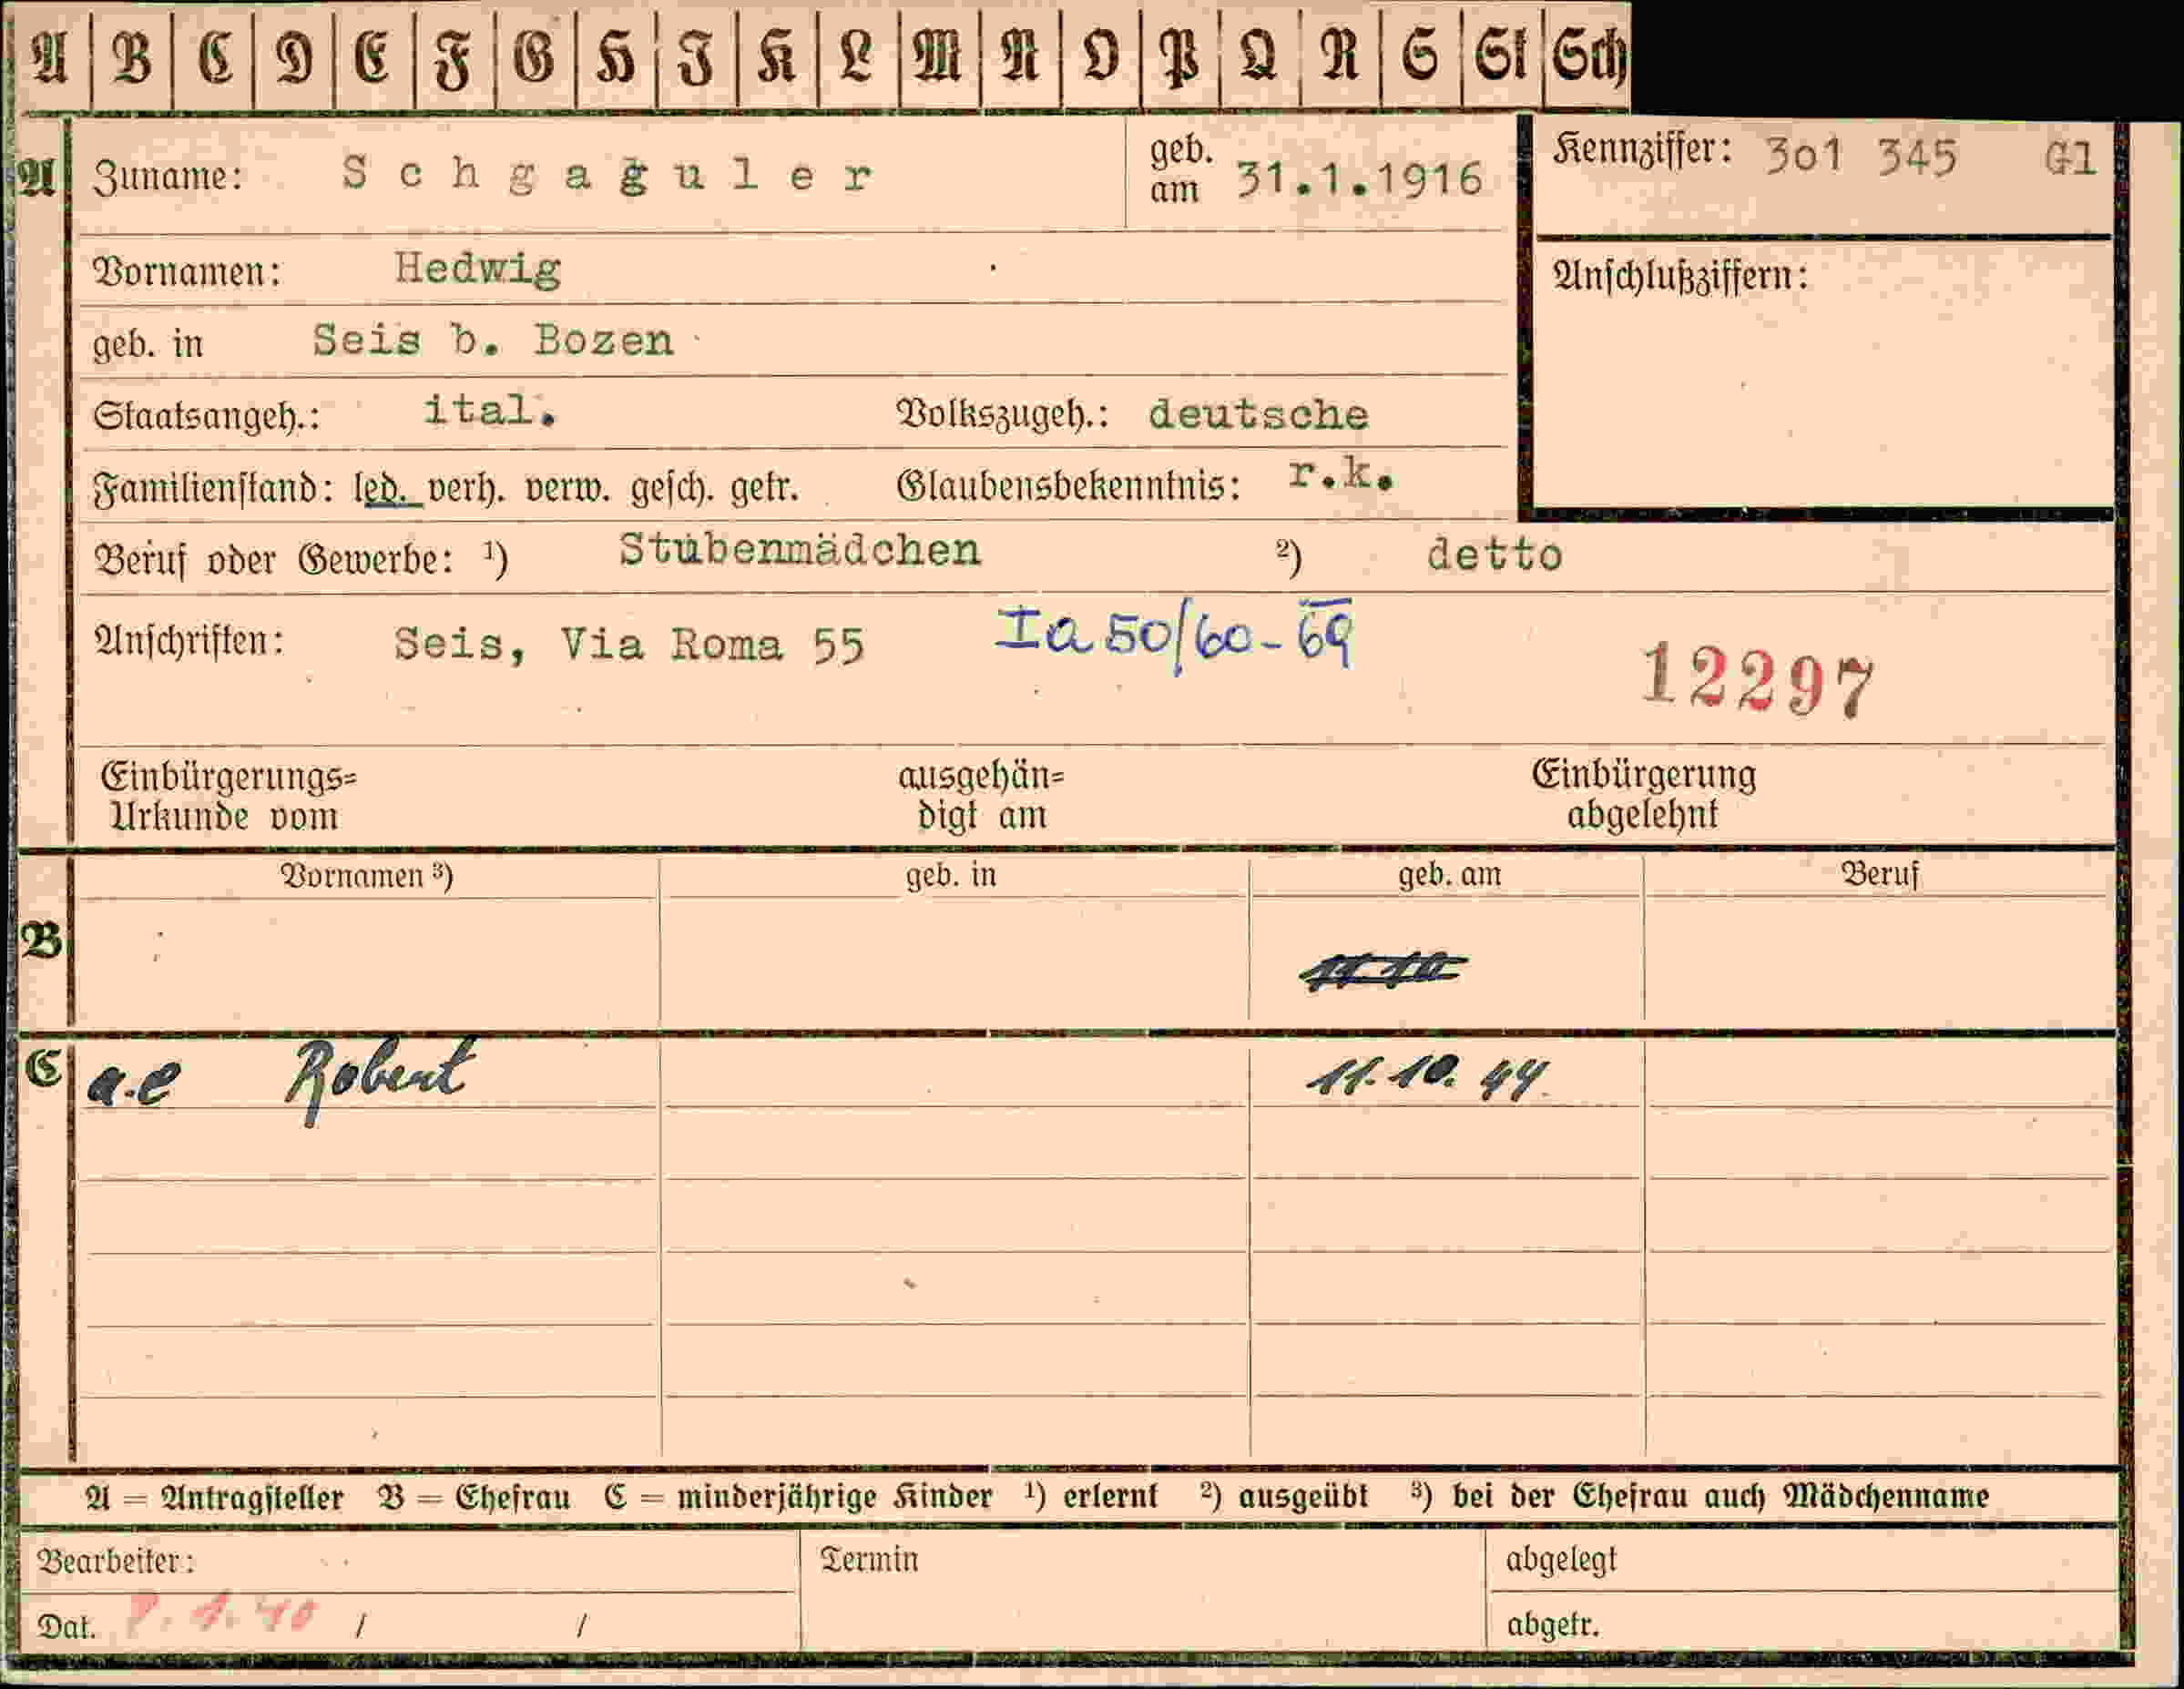 A B C D E F G H I K L M N O P Q R S St Sch
A Zuname: Schgaguler geb. am 31.1.1916 Kennziffer: 301 345 G1
Vornamen: Hedwig Anschlußziffern:
geb. in Seis b. Bozen
Staatsangeh.: ital. Volkszugeh.: deutsche
Familienstand: led. verh. verw. gesch. getr. Glaubensbekenntnis: r.k.
Beruf oder Gewerbe: 1) Stubenmädchen 2) detto
Anschriften: Seis, Via Roma 55 Ia 50/60-69
12297
Einbürgerungs= ausgehän= Einbürgerung
Urkunde vom digt am abgelehnt
Vornamen 3) geb. in geb. am Beruf
B 11.10
C a.e Robert 11.10.44.
A = Antragsteller B = Ehefrau C = minderjährige Kinder 1) erlernt 2) ausgeübt 3) bei der Ehefrau auch Mädchenname
Bearbeiter: Termin abgelegt
Dat. / / abgetr.